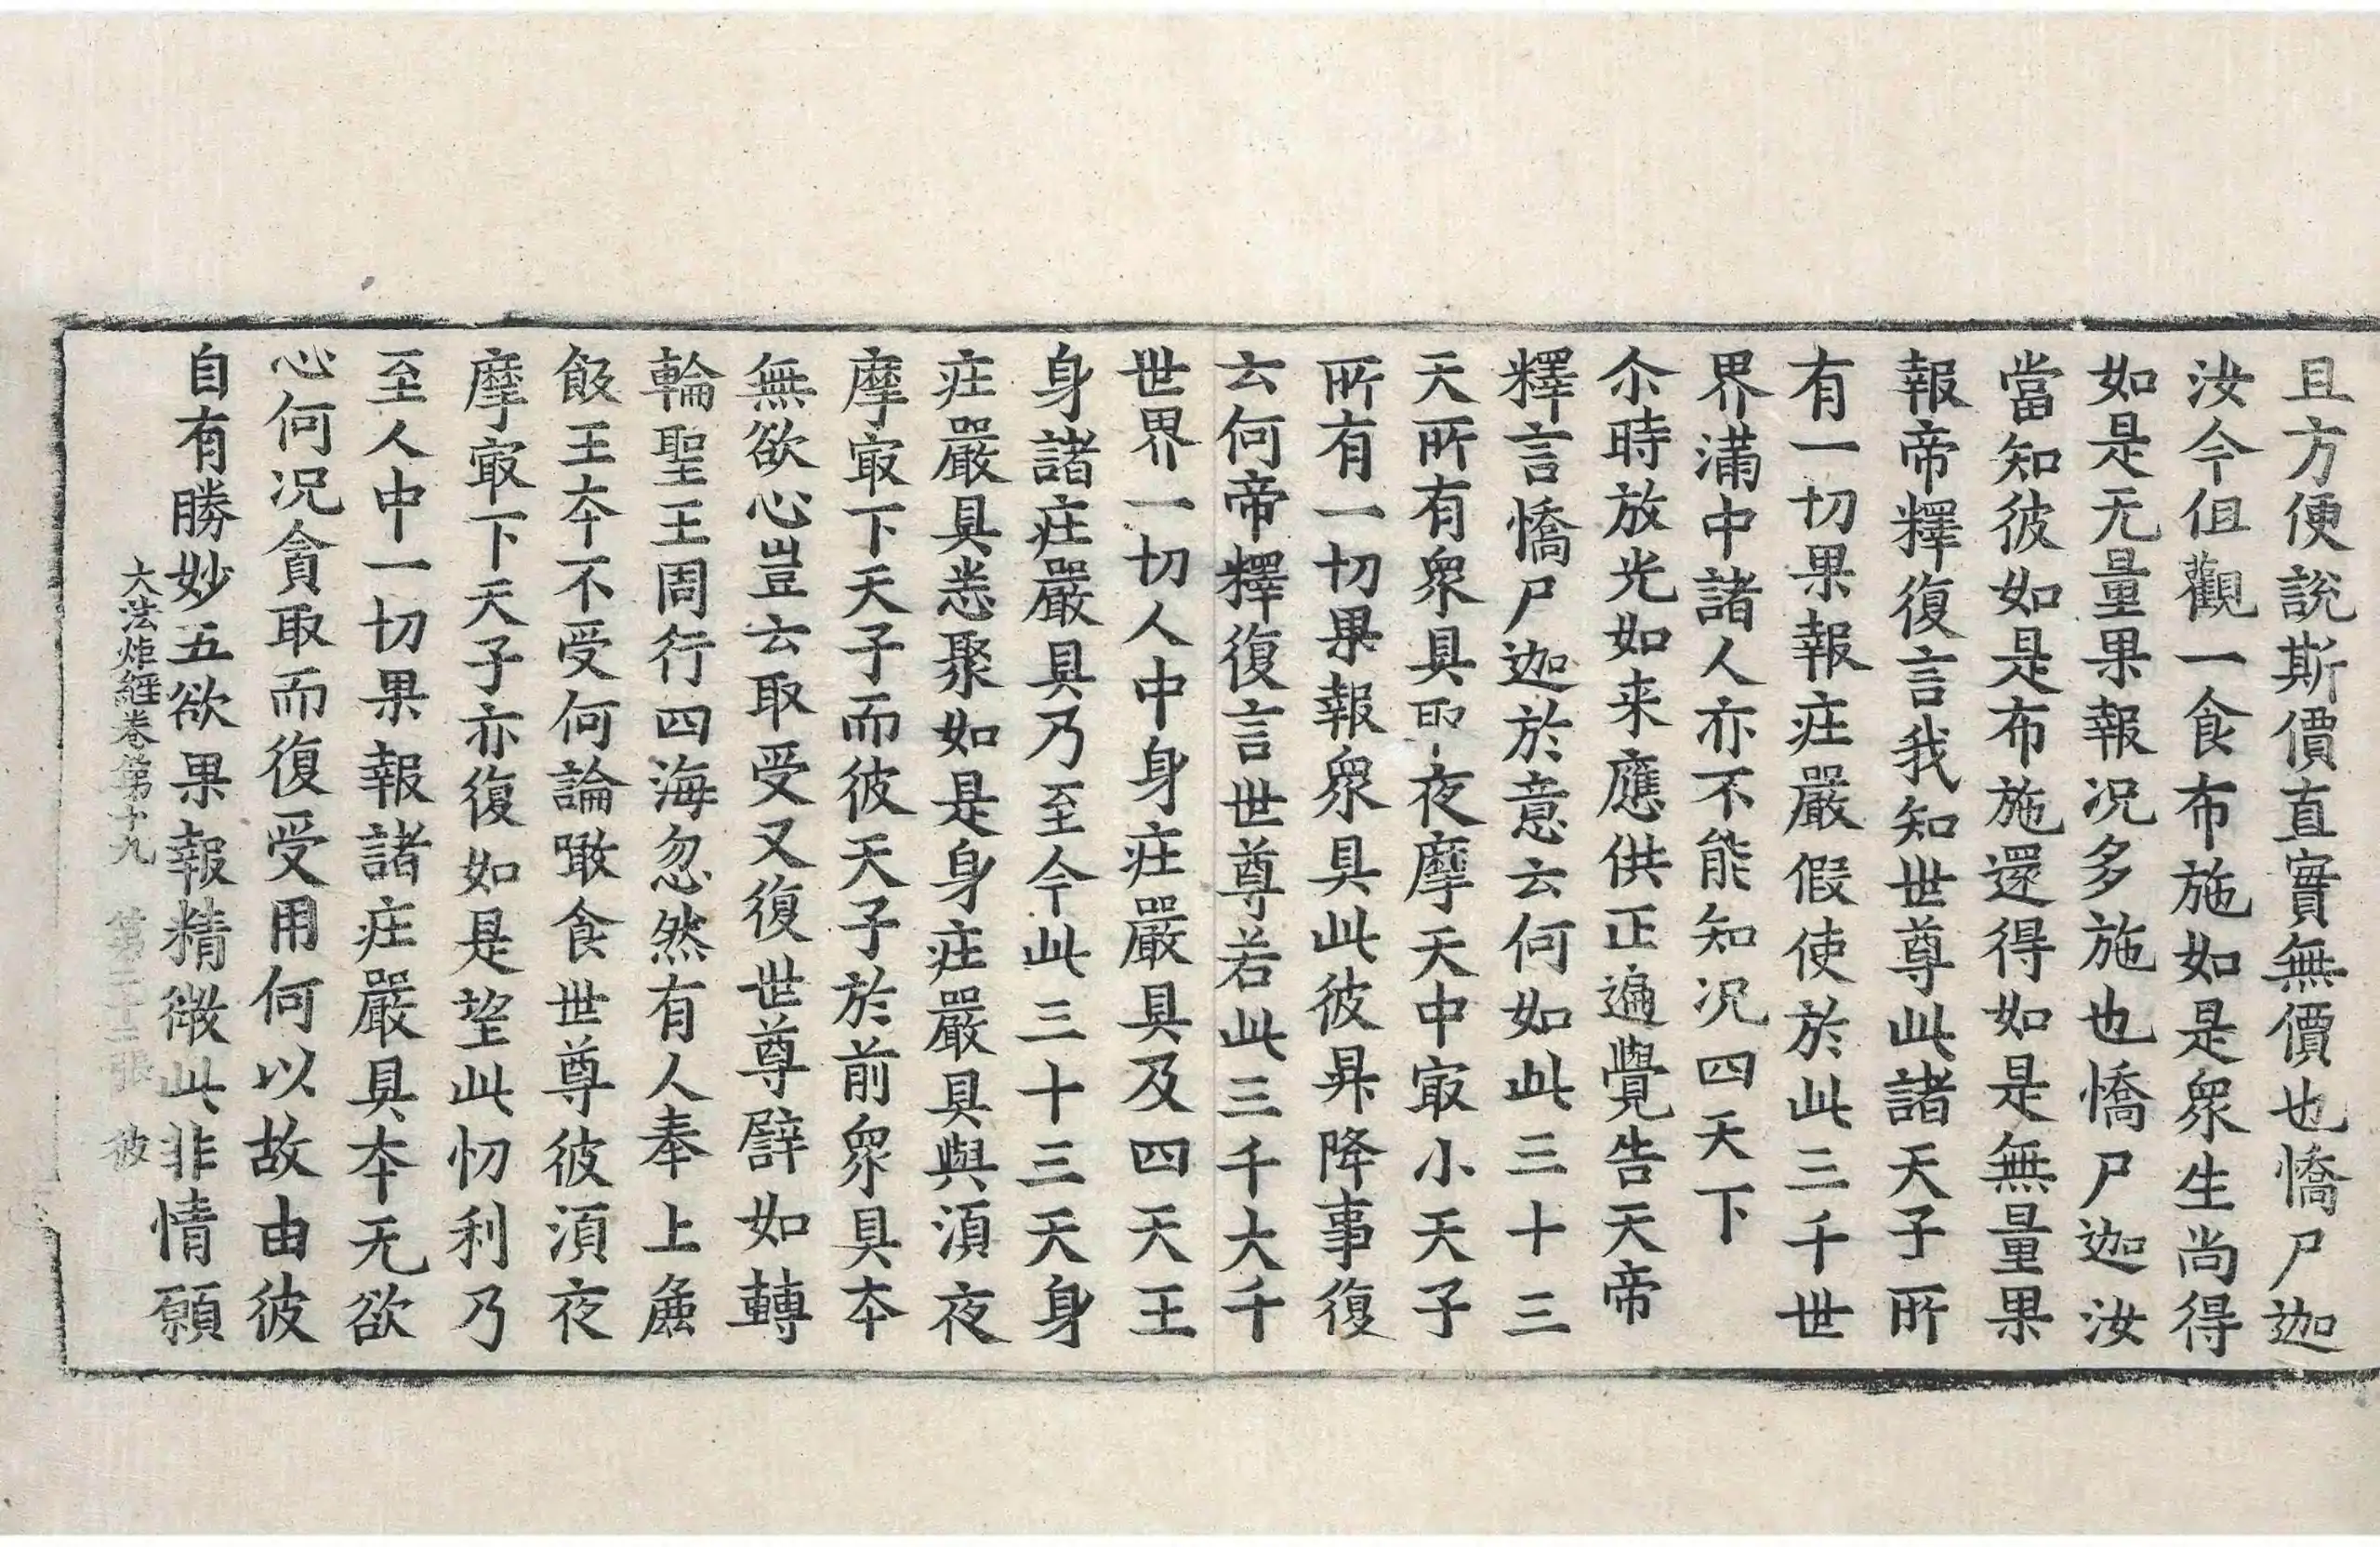 且方便說斯價直實無價也憍尸迦
汝今伹觀一食布施如是衆生尚得
如是无量果報况多施也憍尸迦汝
當知彼如是布施還得如是無量果
報帝釋復言我知世尊此諸天子所
有一切果報庄嚴假使於此三千世
界滿中諸人亦不能知况四天下
尒時放光如来應供正遍覺告天帝
釋言憍尸迦於意云何如此三十三
天所有衆具即夜摩天中㝡小天子
所有一切果報衆具此彼昇降事復
云何帝釋復言世尊若此三千大千
世界一切人中身庄嚴具及四天王
身諸庄嚴具乃至今此三十三天身
庄嚴具悉聚如是身庄嚴具與湏夜
摩㝡下天子而彼天子於前衆具本
無欲心豈云取受又復世尊譬如轉
輪聖王周行四海忽然有人奉上麁
飯王夲不受何論噉食世尊彼湏夜
摩㝡下天子亦復如是望此忉利乃
至人中一切果報諸庄嚴具夲无欲
心何况貪取而復受用何以故由彼
自有勝妙五欲果報精微此非情願
大法炬經卷第十九 第二十三張 彼